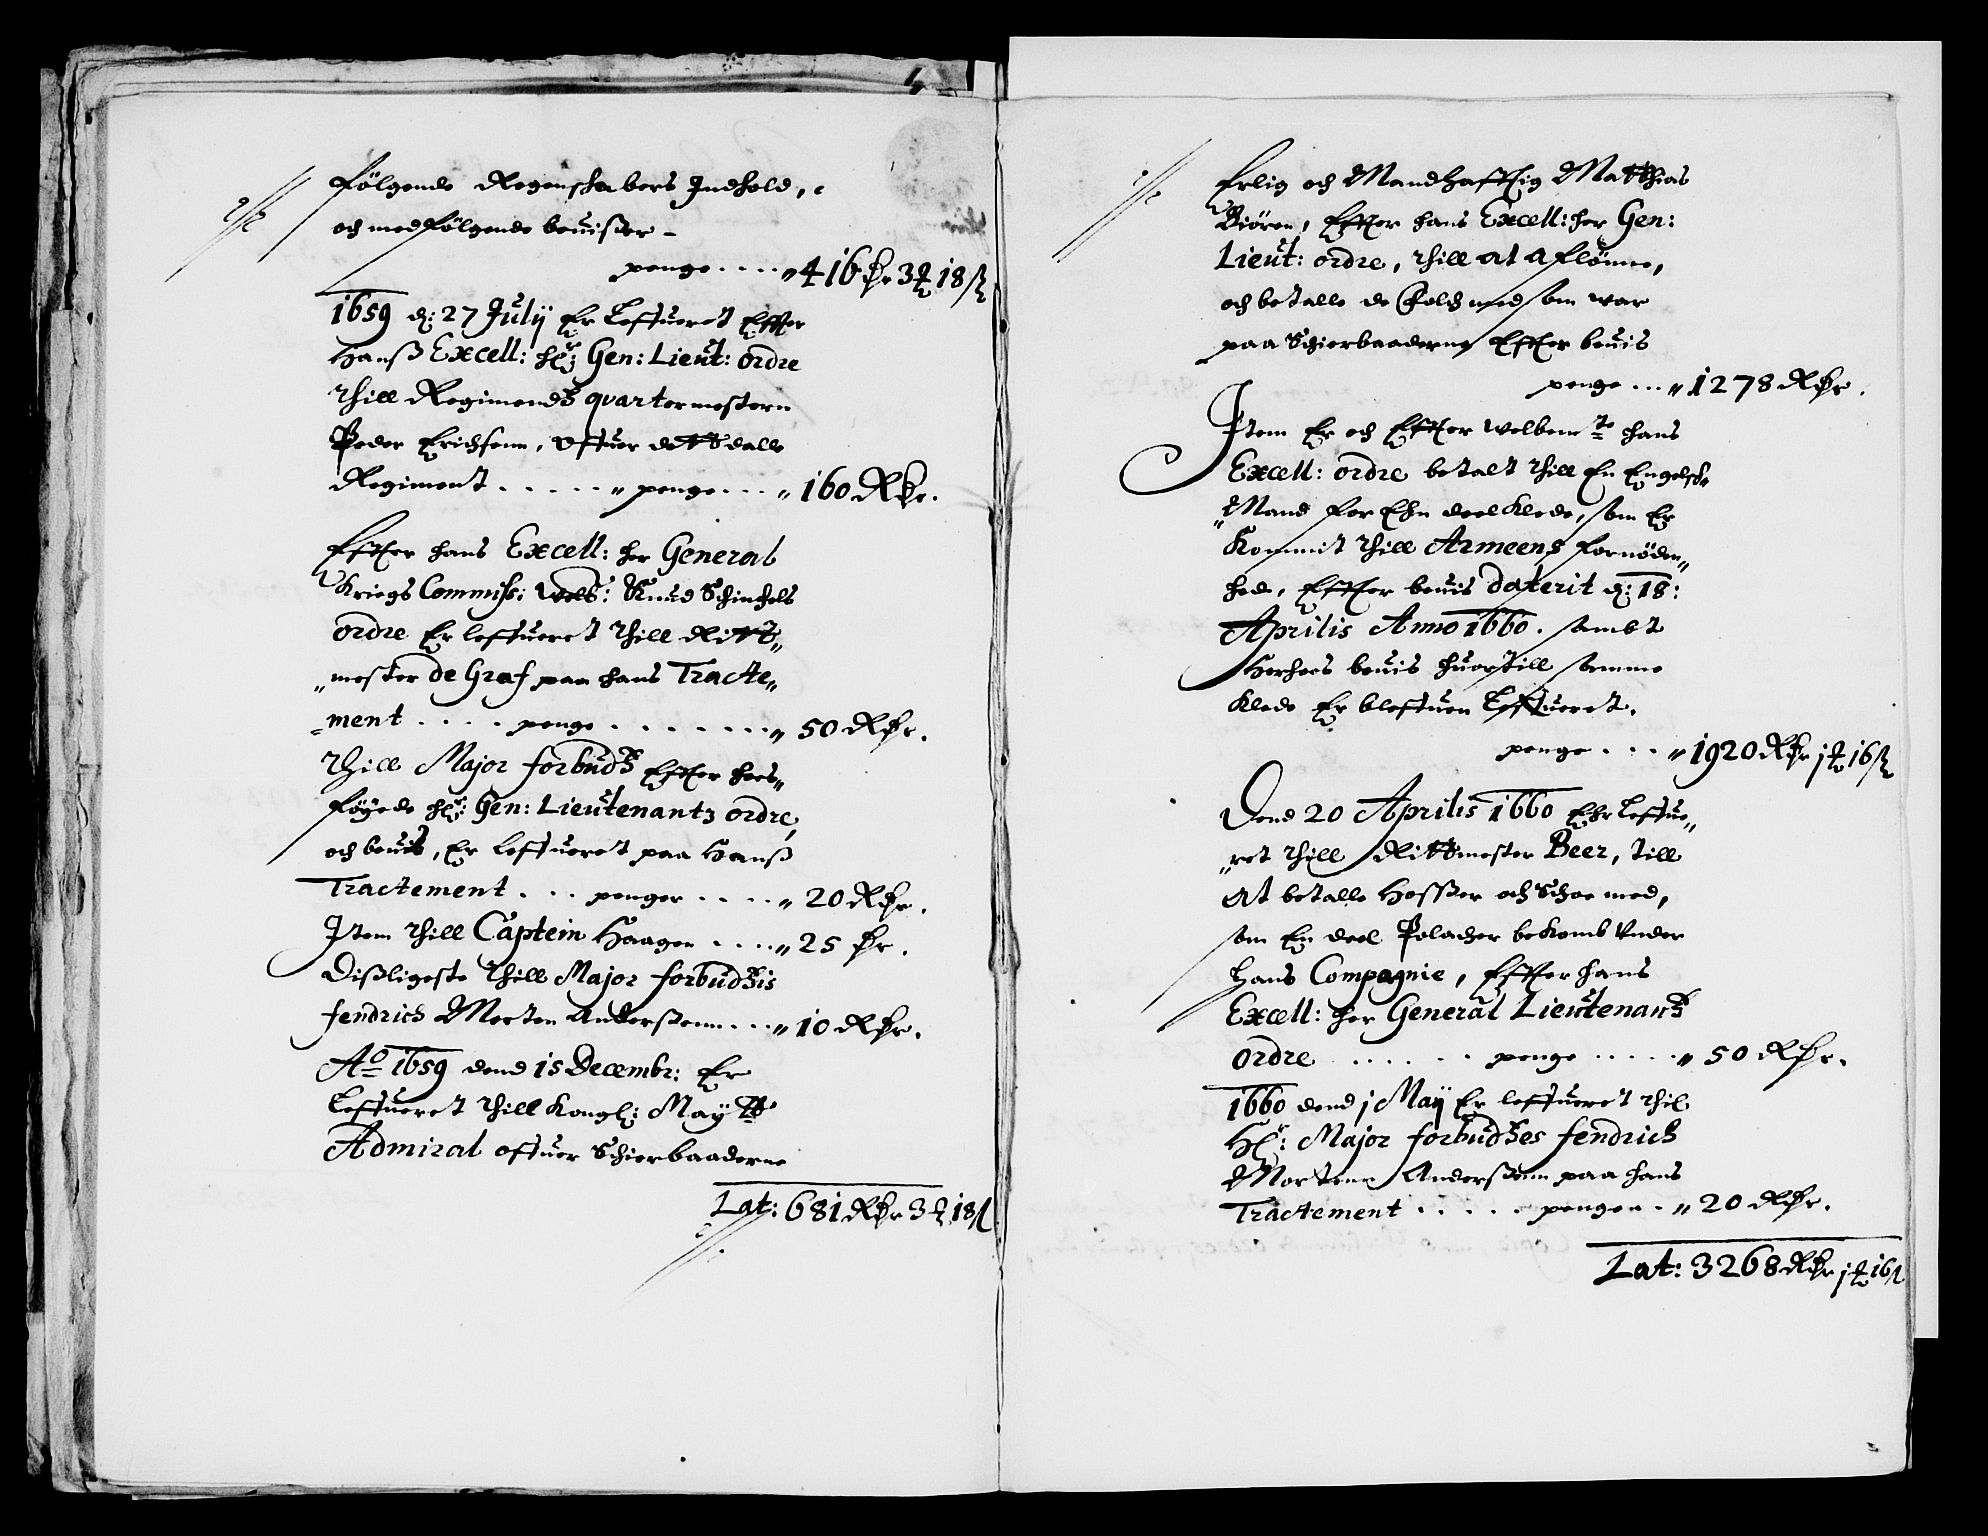 følgende Regenschabers Indhold,
och medfølgende beuißer
penge .... 416 Rdr 3 ₰ 18 ß
1659 d: 27 July Er Lefueret Effter
Hanß Excell: hr: Gen: Lieut: ordre
thill Regimendz quartermestern
Peder Erichsenn, Ofuer dett dalle
Regiment ..... penge ... 160 Rdr.
Effter hans Excell: her General
Kriegs Commiß: Welb: Knud Schinchels
ordre Er lefueret thill Ritt
mester de Graf paa hans Tracte
ment .... penge ....... 50 Rdr.
Thill Major forbudz Effter hos
føyede hr: Gen: Lieutenantz ordre,
och beuis, Er lefueret paa Hanß
Tractement ... penger .... 20 Rdr.
Item thill Captein Haagen .... 25 Rdr.
Dißligeste thill Major forbudzis
fendrich Morten Anderßenn ... 10 Rdr.
Ao 1659 dend 15 Decembr: Er
Lefueret thill Kongl: Maytts
Admiral ofuer Schierbaaderne
Lat: 681 Rdr 3 ₰ 18 ß
Erlig och Mandhafftig Matthias
Biörn, Effter hans Excell: her Gen:
Lieut: ordre, thill at aflönne,
och betalle de folch med som war
paa Schierbaaderne Effter beuis
penge ... 1278 Rdr.
Item Er och Effter welbemte hans
Excell: ordre betalt thill En Engelsch
Mand for Ehn deel Klede, som Er
Kommit thill Armeens fornöden
hed, Effter beuis daterit d: 18:
Aprilis Anno 1660. sambt
Herhers beuis huortill samme
Klede Er blefuen Lefueret.
penge ... 1920 Rdr j ₰ 16 ß
Dend 20 Aprilis 1660 Ehr Lefue
ret thill Rittmester Beer, till
at betalle Hoßer och Schoe med,
som En deel Polacher bekomb Vnder
hans Compagnie, Effter hans
Excell: her General Lieutenantz
ordre ...... penge ..... 50 Rdr.
1660 dend j Maij Er lefueret thil
Hr: Major forbudzes fendrich
Mortenn Anderßenn paa hans
Tractement ..... penge .. 20 Rdr.
Lat: 3268 Rdr j ₰ 16 ß